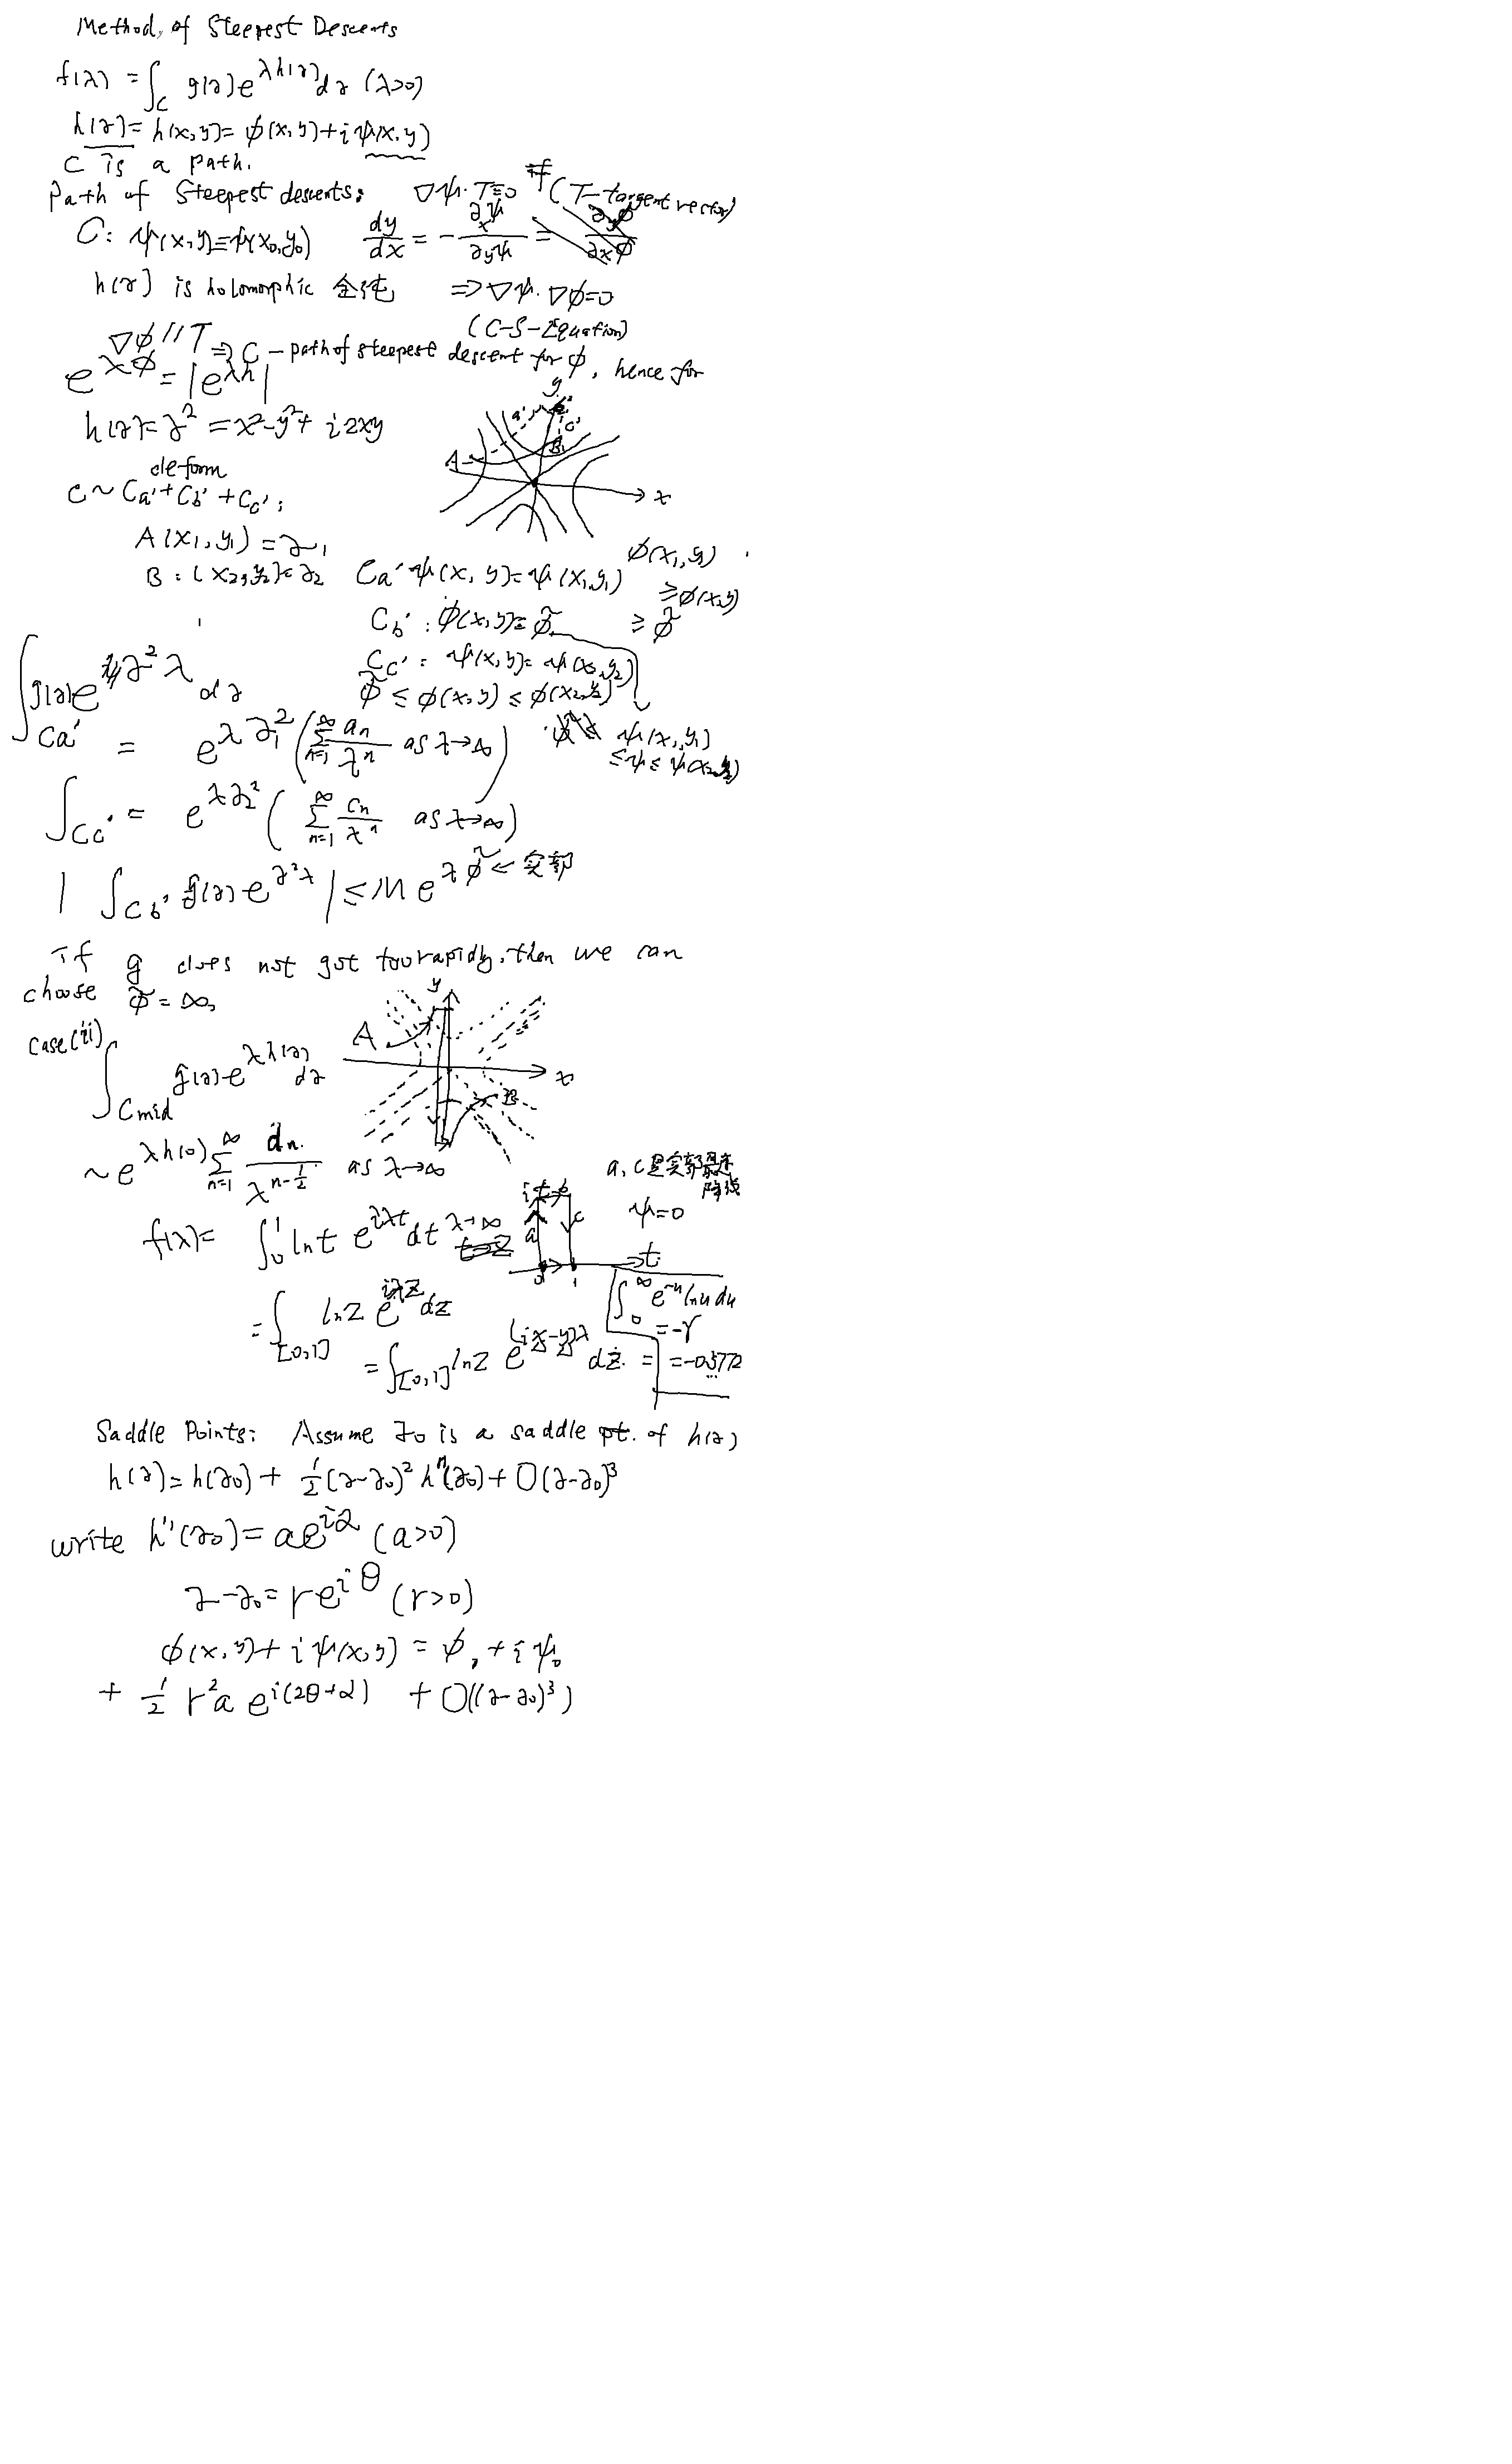 Method of Steepest Descents
f(λ) = ∫_C g(z)e^{λh(z)}dz (λ>0)
h(z) = h(x,y) = φ(x,y)+iψ(x,y)
C is a path.
Path of Steepest descents: ∇ψ·T=0 (T-tangent vector)
C: ψ(x,y)=ψ(x₀,y₀) dy/dx = -∂ₓψ/∂_yψ = ∂_yφ/∂ₓφ
h(z) is holomorphic 全纯 ⇒ ∇ψ·∇φ=0
(C-S-Equation)
∇φ//T ⇒ C - path of steepest descent for φ, hence for
e^{λφ} = |e^{λh}|
y
h(z)=z² = x²-y²+i2xy
a' b' c'
A B x
deform
C ~ C_{a'}+C_{b'}+C_{c'};
A(x₁,y₁)=z₁
B:(x₂,y₂)=z₂ C_{a'} ψ(x,y)=ψ(x₁,y₁) φ(x₁,y₁)
≥φ(x,y)
C_{b'}: φ(x,y)=φ̃ ≥φ̃
∫_{Ca'} g(z)e^{z²λ}dz C_{c'}: ψ(x,y)=ψ(x₂,y₂)
φ̃ ≤ φ(x,y) ≤ φ(x₂,y₂)
= e^{λz₁²}(∑_{n=1}^{∞} a_n/λⁿ as λ→∞) ψ(x₁,y₁)
≤ψ≤ψ(x₂,y₂)
∫_{Cc'} = e^{λz₂²}(∑_{n=1}^{∞} c_n/λⁿ as λ→∞)
|∫_{Cb'} g(z)e^{z²λ}| ≤ Me^{λφ̃} ← 实部
if g does not got too rapidly, then we can
choose φ̃=∞,
y
case(ii) A
∫_{Cmid} g(z)e^{λh(z)}dz x
B
~e^{λh(0)} ∑_{n=1}^{∞} d_n/λ^{n-1/2} as λ→∞ a,c是实部最速
降线
ψ=0
f(λ)= ∫₀¹ ln t e^{iλt}dt λ→∞ a c t
0 1
= ∫_{[0,1]} ln z e^{iλz}dz ∫₀^∞ e^{-u}ln u du
=-γ
= ∫_{[0,1]} ln z e^{(ix-y)λ}dz. = =-0.5772...
Saddle Points: Assume z₀ is a saddle pt. of h(z)
h(z)=h(z₀)+ ½(z-z₀)²h''(z₀)+O(z-z₀)³
write h''(z₀)=ae^{iα} (a>0)
z-z₀=re^{iθ} (r>0)
φ(x,y)+iψ(x,y)=φ₀+iψ₀
+ ½r²a e^{i(2θ+α)} +O((z-z₀)³)